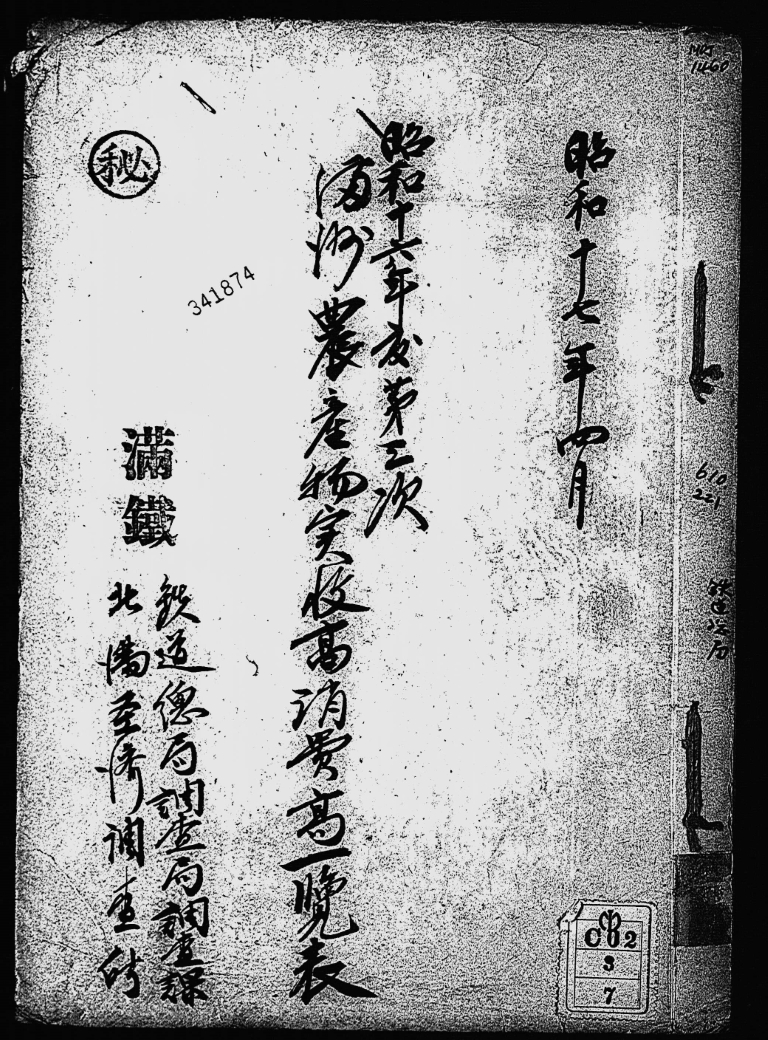 昭和十七年四月
昭和十六年度第三次
満洲農産物実收高消費高一覽表
㊙
341874
滿鐵
鉄道總局調査局調査課
北満経済調査所
C62
3
7
610
221